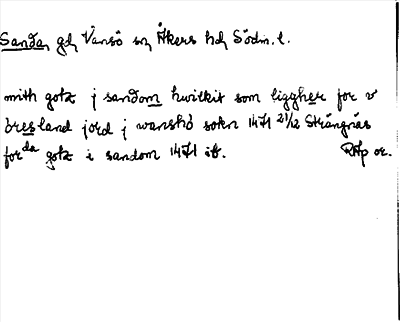 Sanda, gd, Vansö sn, Åkers hd, Södm. l.
mith gotz j sandom hwilkit som liggher for v
öresland jord j wanshö sokn 1471 21/12 Strängnäs
forda gotz i sandom 1471 ib. RAp or.